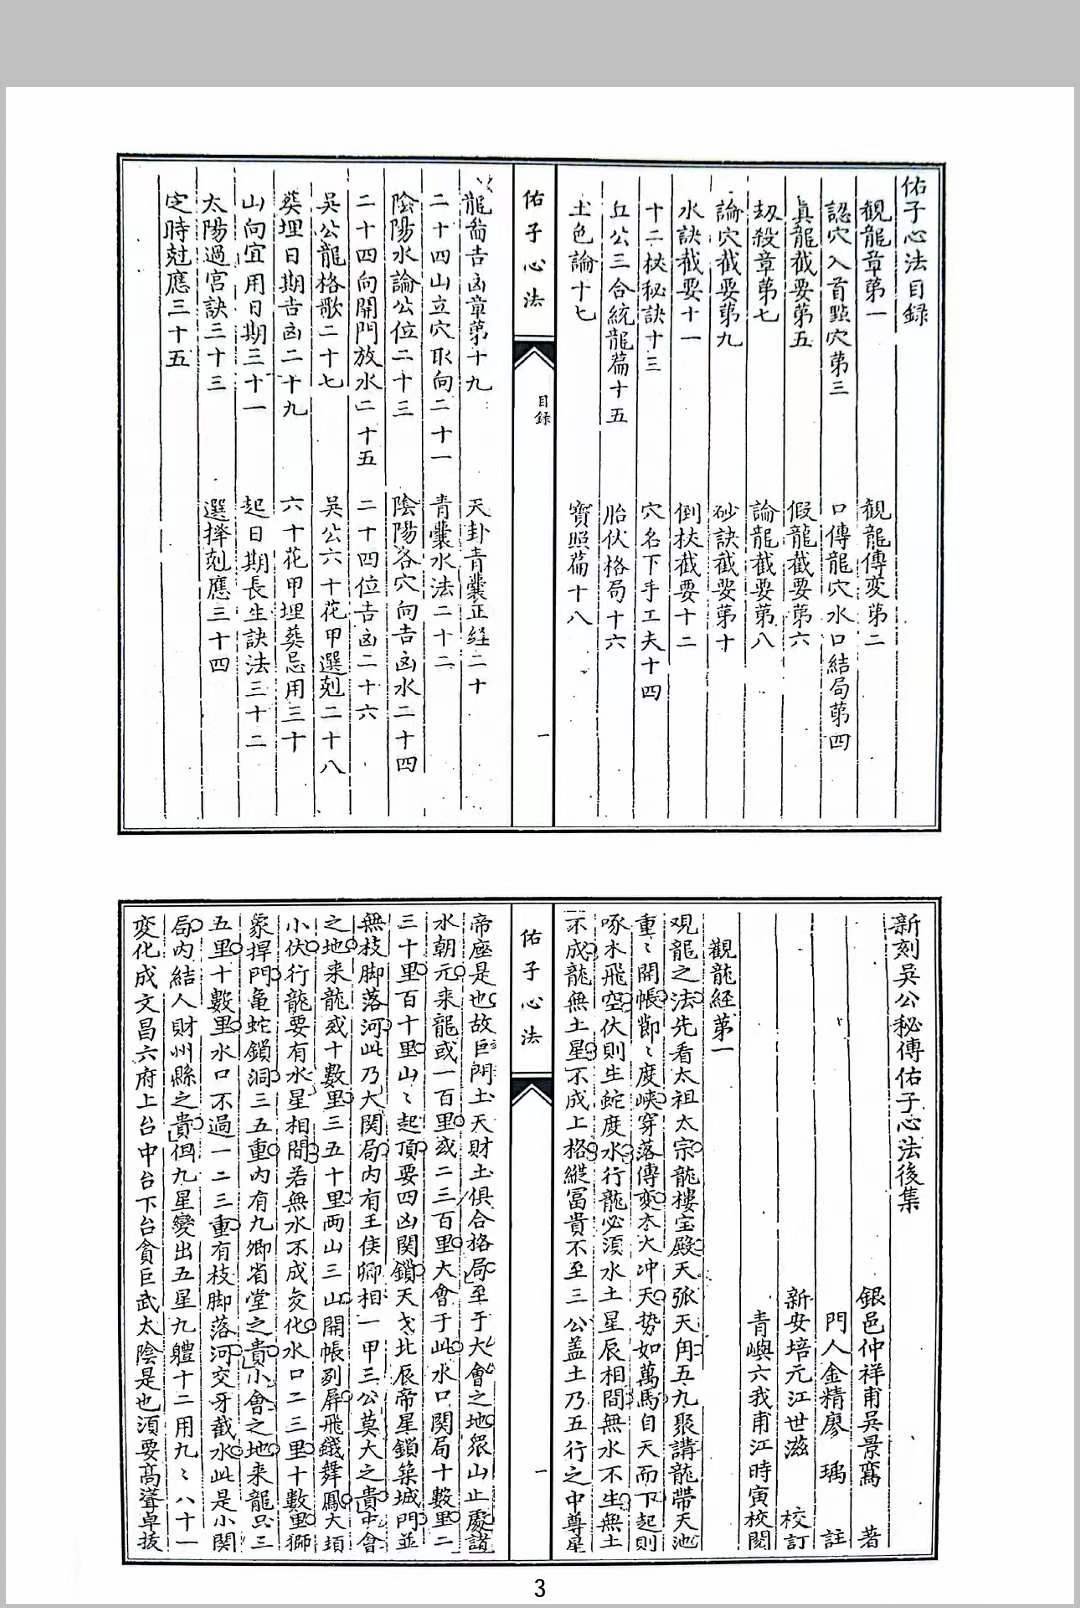 佑子心法目録
觀龍章第一
觀龍傳変第二
認穴入首點穴第三
口傳龍穴水口結局第四
真龍截要第五
假龍截要第六
刼殺章第七
論龍截要第八
論穴截要第九
砂訣截要第十
水訣截要十一
倒杖截要十二
十二杖秘訣十三
穴名下手工夫十四
丘公三合統龍篇十五
胎伏格局十六
土色論十七
寶照篇十八
佑子心法
目録
一
龍
吉凶章第十九
天卦青囊正経二十
二十四山立穴取向二十一
青囊水法二十二
陰陽水論公位二十三
陰陽各穴向吉凶水二十四
二十四向開門放水二十五
二十四位吉凶二十六
吳公龍格歌二十七
吳公六十花甲選剋二十八
葬埋日期吉凶二十九
六十花甲埋葬忌用三十
山向宜用日期三十一
起日期長生訣法三十二
太陽過宮訣三十三
選擇剋應三十四
定時尅應三十五
新刻吳公秘傳佑子心法後集
銀邑仲祥甫吳景鸞 著
門人金精廖 瑀 註
新安培元江世滋 校訂
青嶼六我甫江時寅校閱
觀龍經第一
观龍之法先看太祖太宗龍樓宝殿天弧天角五九聚講龍帶天池
重〻開帳節〻度峽穿落傳変木火冲天势如萬馬自天而下起則
啄水飛空伏則生蛇度水行龍必湏水土星辰相間無水不生無土
不成龍無土星不成上格縱冨貴不至三公盖土乃五行之中尊星
佑子心法
一
帝座是也故巨門土天財土俱合格局至于大會之地衆山止處諸
水朝元来龍或一百里或二三百里大會于此水口関局十數里二
三十里百十里山〻起頂要四凶関鎖天戈北辰帝星鎖築城門並
無枝脚落河此乃大関局内有王侯卿相一甲三公莫大之貴中會
之地来龍或十數里三五十里两山三山開帳列屏飛鵝舞鳳大頃
小伏行龍要有水星相間若無水不成変化水口二三里十數里獅
象捍門亀蛇鎖洞三五重内有九卿省堂之貴小會之地来龍只三
五里十數里水口不過一二三重有枝脚落河交牙截水此是小関
局内結人財州縣之貴但九星變出五星九體十二用九〻八十一
変化成文昌六府上台中台下台貪巨武太陰是也湏要高聳卓拔
3